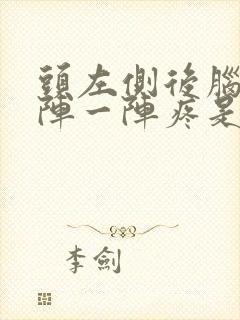 頭左側後腦
陣一陣疼是
李劍